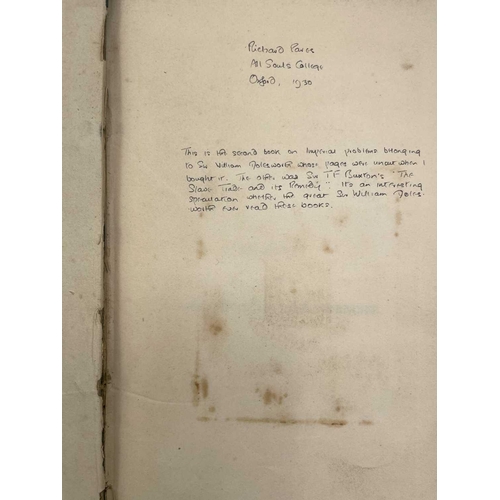 Richard Pares
All Souls College
Oxford, 1930
This is the second book on Imperial problems belonging
to Sir William Molesworth whose pages were uncut when I
bought it. The other was Sir T F Buxton's "The
Slave Trade and its Remedy". It's an interesting
speculation whether the great Sir William Moles-
worth ever read these books.